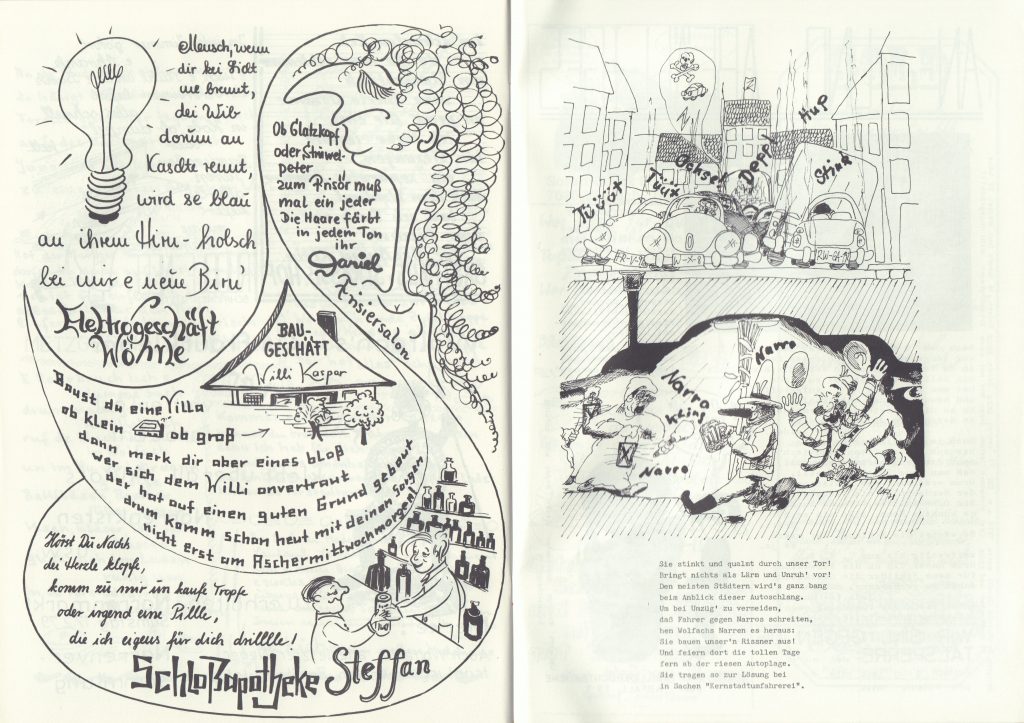 Mensch, wenn
dir kei Lidt
me brennt,
dei Wib
dorum an
Kaschte rennt,
wird se blau
an ihrem Hirn-holsch
bei mir e neui Birn'
Elektrogeschäft
Wöhrle
Ob Glatzkopf
oder Struwel-
peter
zum Frisör muß
mal ein jeder
Die Haare färbt
in jedem Ton
ihr
Daniel
Frisiersalon
BAU-
GESCHÄFT
Willi Kaspar
Baust du eine Villa
ob klein ob groß
dann merk dir aber eines bloß
wer sich dem Willi anvertraut
der hat auf einen guten Grund gebaut
drum komm schon heut mit deinen Sorgen
nicht erst am Aschermittwochmorgen!
Hörst Du Nachts
dei Herzle klopfe,
komm zu mir un kaufe Tropfe
oder irgend eine Pille,
die ich eigens für dich drilllle!
Schloßapotheke Steffan
Hup
Depp!
Ochse!
Stink
Tüüt
Tüüüt
FR-V-
W-X-9
RW-GA-
Narro
Narro
Kling
Narro
Sie stinkt und qualmt durch unser Tor!
Bringt nichts als Lärm und Unruh' vor!
Den meisten Städtern wird's ganz bang
beim Anblick dieser Autoschlang.
Um bei Umzüg' zu vermeiden,
daß Fahrer gegen Narros schreiten,
hen Wolfachs Narren es heraus:
Sie bauen unser'n Rissner aus!
Und feiern dort die tollen Tage
fern ab der riesen Autoplage.
Sie tragen so zur Lösung bei
in Sachen "Kernstadtumfahrerei".